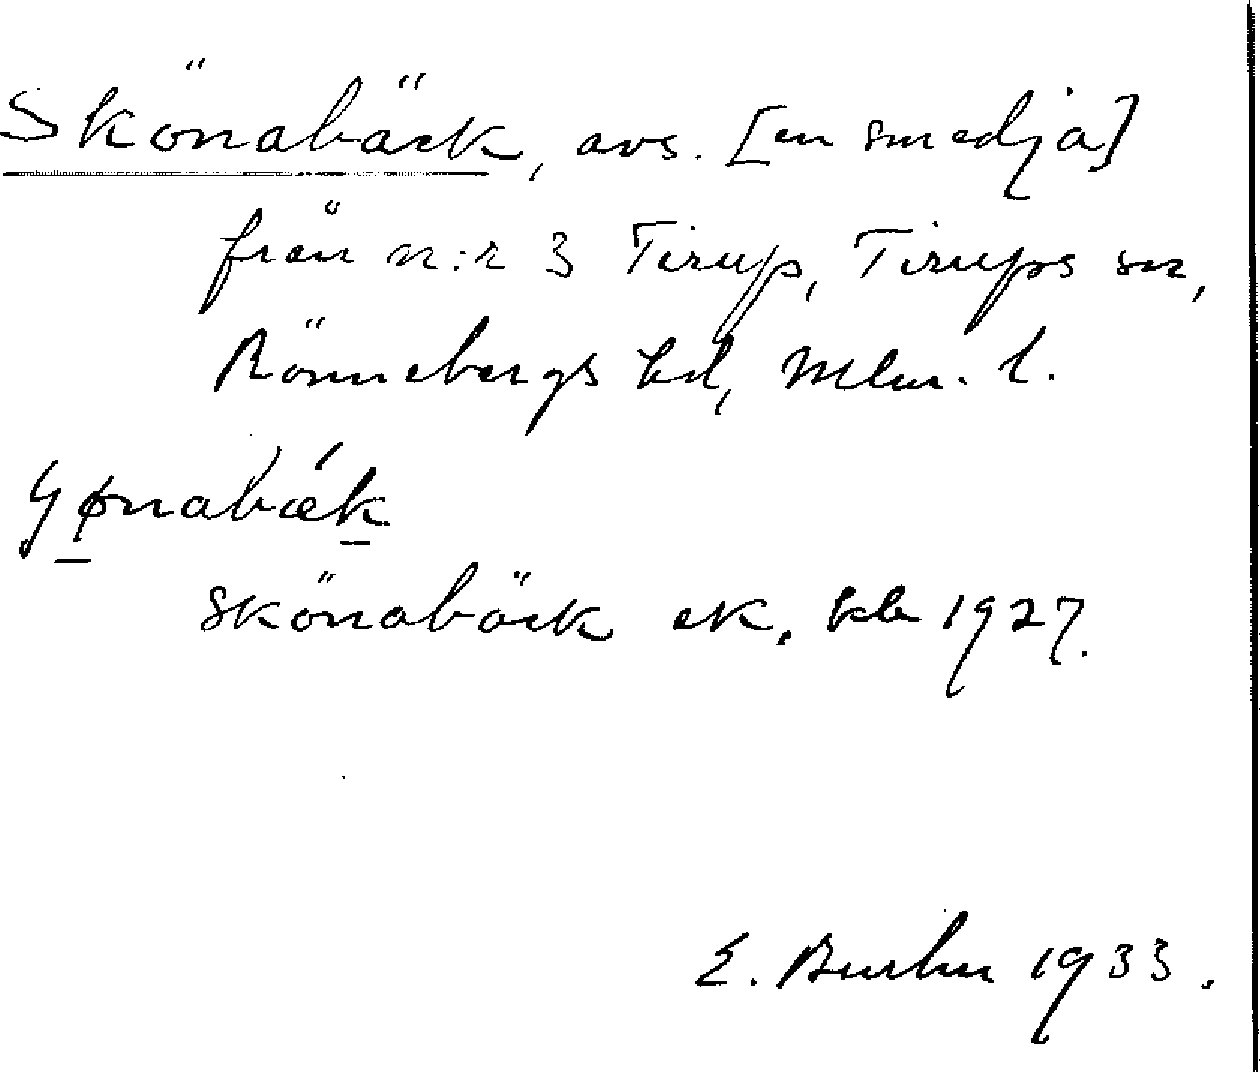 Skönabäck, avs. [en smedja]
från n:r 3 Tirup, Tirups sn,
Rönnebergs hd, Mlm. l.
skönabäck ek. kb 1927.
E. 1933.